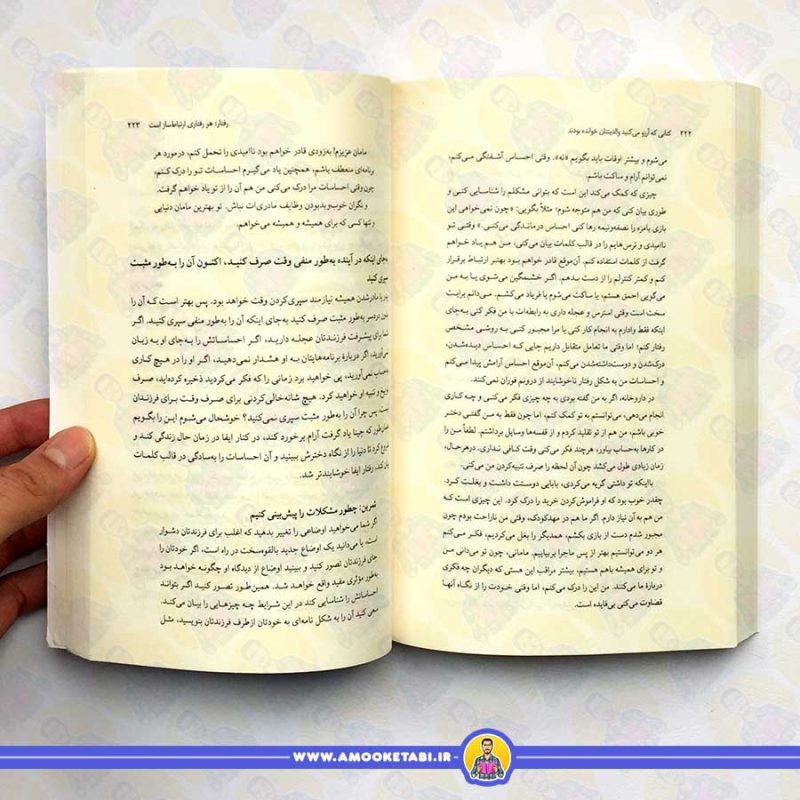 ۲۲۲ کتابی که آرزو می‌کنید والدینتان خوانده بودند
می‌شوم و بیشتر اوقات باید بگویم «نه». وقتی احساس آشفتگی می‌کنم،
نمی‌توانم آرام و ساکت باشم.
چیزی که کمک می‌کند این است که بتوانی مشکلم را شناسایی کنی و
طوری بیان کنی که من هم متوجه شوم؛ مثلاً بگویی: «چون نمی‌خواهی این
بازی بامزه را نصفه‌ونیمه رها کنی احساس درماندگی می‌کنی.» وقتی تو
ناامیدی و ترس‌هایم را در قالب کلمات بیان می‌کنی، من هم یاد خواهم
گرفت از کلمات استفاده کنم. آن‌موقع قادر خواهم بود بهتر ارتباط برقرار
کنم و کمتر کنترلم را از دست بدهم. اگر خشمگین می‌شوی یا به من
می‌گویی احمق هستم، یا ساکت می‌شوم یا فریاد می‌کشم، می‌دانم برایت
سخت است وقتی استرس و عجله داری به رابطه‌ات با من فکر کنی به‌جای
اینکه فقط وادارم به انجام کار کنی یا مرا مجبور کنی به روشی مشخص
رفتار کنم؛ اما وقتی ما تعامل متقابل داریم جایی که احساس دیده‌شدن،
درک‌شدن و دوست‌داشته‌شدن می‌کنم، آن‌موقع احساس آرامش پیدا می‌کنم
و احساسات من به شکل رفتار ناخوشایند از درونم فوران نمی‌کنند.
در داروخانه، اگر به من گفته بودی به چه چیزی فکر می‌کنی و چه کاری
انجام می‌دهی، می‌توانستم به تو کمک کنم، اما چون فقط به من گفتی دختر
خوبی باشم، من هم از تو تقلید کردم و از قفسه‌ها وسایل برداشتم. لطفاً من را
در کارها به‌حساب بیاور، هرچند فکر می‌کنی وقت کافی نداری، درهرحال،
زمان زیادی طول می‌کشد چون آن لحظه را صرف تنبیه‌کردن من می‌کنی.
بااینکه تو داشتی گریه می‌کردی، بابایی دوستت داشت و بغلت کرد.
چقدر خوب بود که او فراموش‌کردن خرید را درک کرد. این چیزی است که
من هم به آن نیاز دارم. اگر ما هم در مهدکودک، وقتی من ناراحت بودم چون
مجبور شدم دست از بازی بکشم، همدیگر را بغل می‌کردیم، فکر می‌کنم
هر دو می‌توانستیم بهتر از پس ماجرا بربیاییم. مامانی، چون تو می‌دانی من
و تو برای همیشه باهم هستیم، بیشتر مراقب این هستی که دیگران چه فکری
دربارهٔ ما می‌کنند. من این را درک می‌کنم، اما وقتی خودت را از نگاه آنها
قضاوت می‌کنی بی‌فایده است.
رفتار؛ هر رفتاری ارتباط‌ساز است ۲۲۳
مامان عزیزم! به‌زودی قادر خواهم بود ناامیدی را تحمل کنم، درمورد هر
برنامه‌ای منعطف باشم، همچنین یاد می‌گیرم احساسات تو را درک کنم؛
چون وقتی احساسات مرا درک می‌کنی من هم آن را از تو یاد خواهم گرفت.
و نگران خوب‌وبدبودن وظایف مادری‌ات نباش. تو بهترین مامان دنیایی
و تنها کسی که برای همیشه و همیشه می‌خواهم.
به‌جای اینکه در آینده به‌طور منفی وقت صرف کنید، اکنون آن را به‌طور مثبت
سپری کنید
یا مادرشدن همیشه نیازمند سپری‌کردن وقت خواهد بود. پس بهتر است که آن را
به‌طور مثبت صرف کنید به‌جای اینکه آن را به‌طور منفی سپری کنید. اگر
برای پیشرفت فرزندتان عجله دارید، اگر احساساتش را به‌جای او به زبان
می‌آورید، اگر دربارهٔ برنامه‌هایتان به او هشدار نمی‌دهید، اگر او را در هیچ کاری
نمی‌آورید، پی خواهید برد زمانی را که فکر می‌کردید ذخیره کرده‌اید، صرف
و تنبیه او خواهید کرد. هیچ شانه‌خالی‌کردنی برای صرف وقت برای فرزندان
نیست، پس چرا آن را به‌طور مثبت سپری نمی‌کنید؟ خوشحال می‌شوم این را بگویم
همان‌طور که جینا یاد گرفت آرام برخورد کند، در کنار ایفا در زمان حال زندگی کند و
شروع کرد تا دنیا را از نگاه دخترش ببیند و آن احساسات را به‌سادگی در قالب کلمات
بیان کند، رفتار ایفا خوشایندتر شد.
تمرین: چطور مشکلات را پیش‌بینی کنیم
اگر شما می‌خواهید اوضاعی را تغییر بدهید که اغلب برای فرزندتان دشوار
است، یا می‌دانید یک اوضاع جدید بالقوه‌سخت در راه است، اگر خودتان را
جای فرزندتان تصور کنید و ببینید اوضاع از دیدگاه او چگونه خواهد بود
به‌طور مؤثری مفید واقع خواهد شد. همین‌طور تصور کنید اگر بتواند
احساساتش را شناسایی کند در این شرایط چه چیزهایی را بیان می‌کند.
سعی کنید آن را به شکل نامه‌ای به خودتان ازطرف فرزندتان بنویسید، مثل
WWW.AMOOKETABI.IR